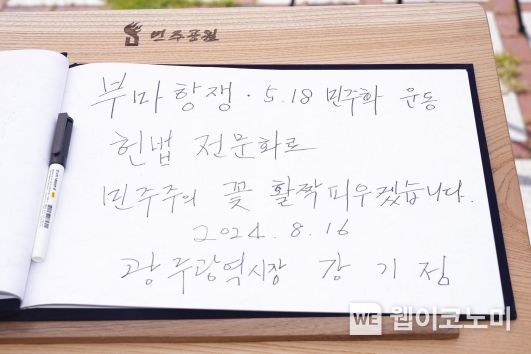 민주공원
부마항쟁 · 5.18 민주화 운동
헌법 전문화로
민주주의 꽃 활짝 피우겠습니다.
2024. 8. 16
광주광역시장 강기정
WE 웹이코노미